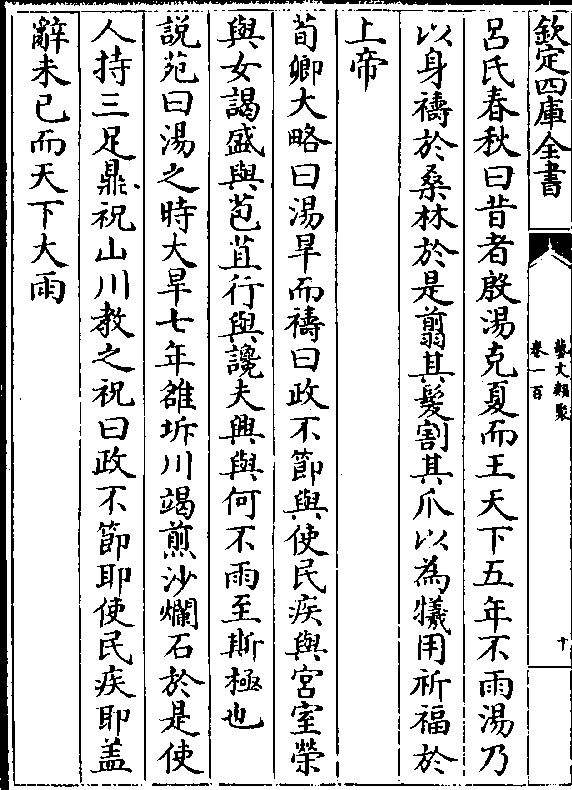 欽定四庫全書
藝文類聚
卷一百
十
呂氏春秋曰昔者殷湯克夏而王天下五年不雨湯乃
以身禱於桑林於是翦其髮割其爪以為犧用祈福於
上帝
荀卿大略曰湯旱而禱曰政不節與使民疾與宮室榮
與女謁盛與苞苴行與讒夫興與何不雨至斯極也
説苑曰湯之時大旱七年雒坼川竭煎沙爛石於是使
人持三足鼎祝山川教之祝曰政不節耶使民疾耶盖
辭未已而天下大雨